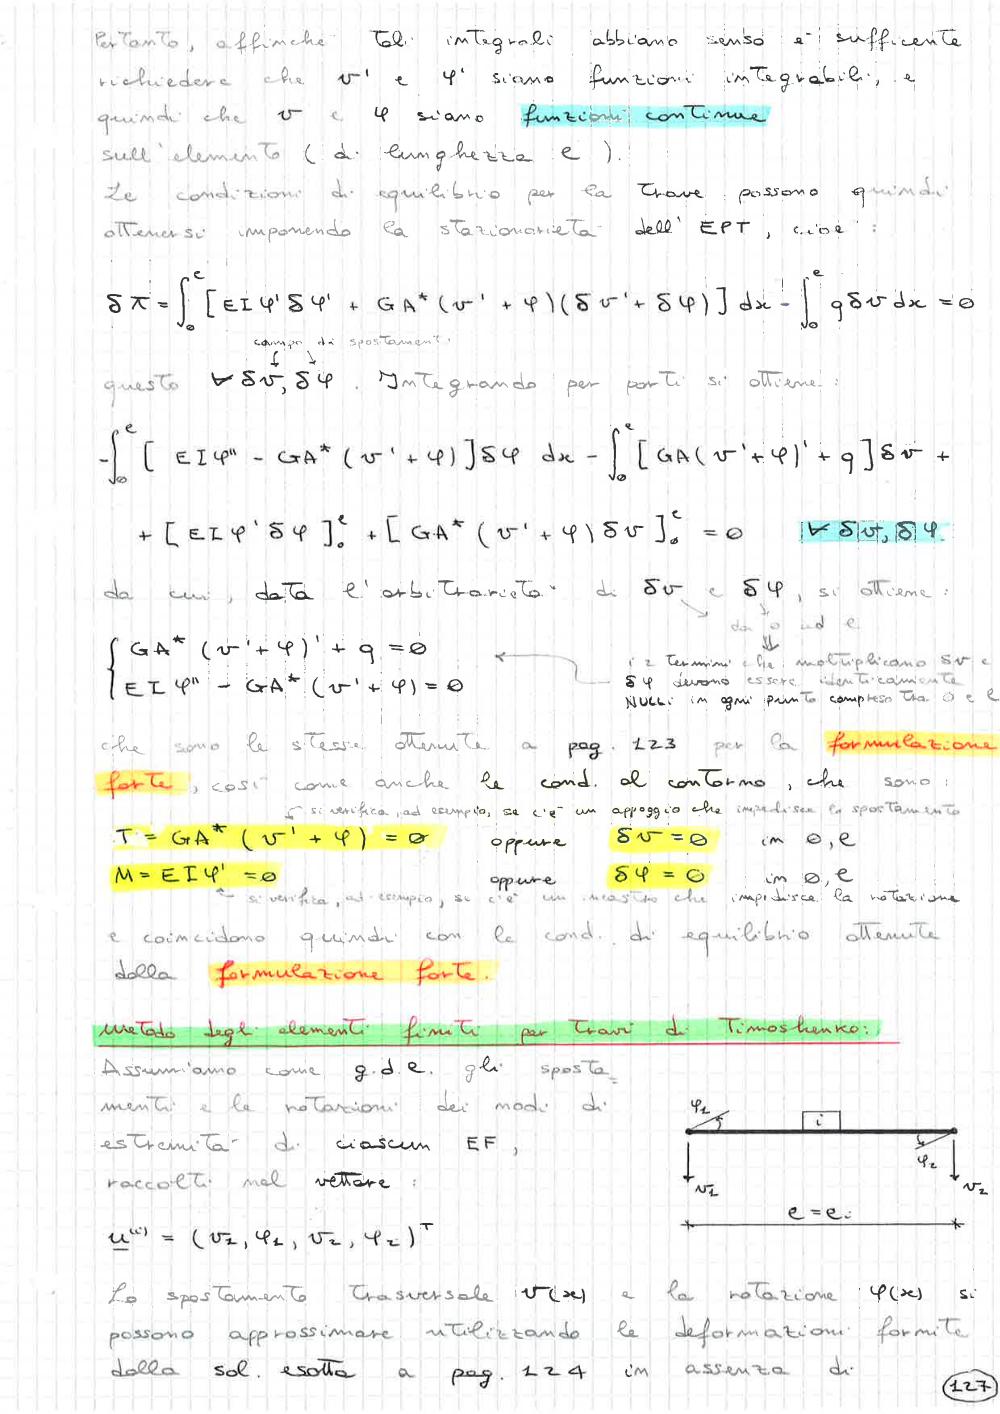 Pertanto, affinché tali integrali abbiano senso è sufficente
richiedere che v' e φ' siano funzioni integrabili, e
quindi che v e φ siano funzioni continue
sull'elemento (di lunghezza ℓ).
Le condizioni di equilibrio per la trave possono quindi
ottenersi imponendo la stazionarietà dell'EPT, cioè:
δπ = ∫₀^ℓ [EIφ'δφ' + GA*(v'+φ)(δv'+δφ)] dx - ∫₀^ℓ qδv dx = 0
campi di spostamenti
questo ∀ δv, δφ. Integrando per parti si ottiene:
-∫₀^ℓ [EIφ'' - GA*(v'+φ)]δφ dx - ∫₀^ℓ [GA(v'+φ)' + q]δv +
+ [EIφ'δφ]₀^ℓ + [GA*(v'+φ)δv]₀^ℓ = 0 ∀ δv, δφ
da cui, data l'arbitrarietà di δv e δφ, si ottiene:
da 0 ad ℓ
{ GA*(v'+φ)' + q = 0
EIφ'' - GA*(v'+φ) = 0
i 2 termini che moltiplicano δv e
δφ devono essere identicamente
NULLI in ogni punto compreso tra 0 e ℓ
che sono le stesse ottenute a pag. 123 per la formulazione
forte, così come anche le cond. al contorno, che sono:
si verifica, ad esempio, se c'è un appoggio che impedisce lo spostamento
T = GA*(v'+φ) = 0 oppure δv = 0 in 0, ℓ
M = EIφ' = 0 oppure δφ = 0 in 0, ℓ
si verifica, ad esempio, se c'è un incastro che impedisce la rotazione
e coincidono quindi con le cond. di equilibrio ottenute
dalla formulazione forte.
Metodo degli elementi finiti per travi di Timoshenko:
Assumiamo come g.d.l. gli sposta
menti e le rotazioni dei nodi di
estremità di ciascun EF,
raccolti nel vettore:
φ₁ i φ₂
v₁ v₂
ℓ = ℓᵢ
u⁽ⁱ⁾ = (v₁, φ₁, v₂, φ₂)ᵀ
Lo spostamento trasversale v(x) e la rotazione φ(x) si
possono approssimare utilizzando le deformazioni fornite
dalla sol. esatta a pag. 124 in assenza di
127